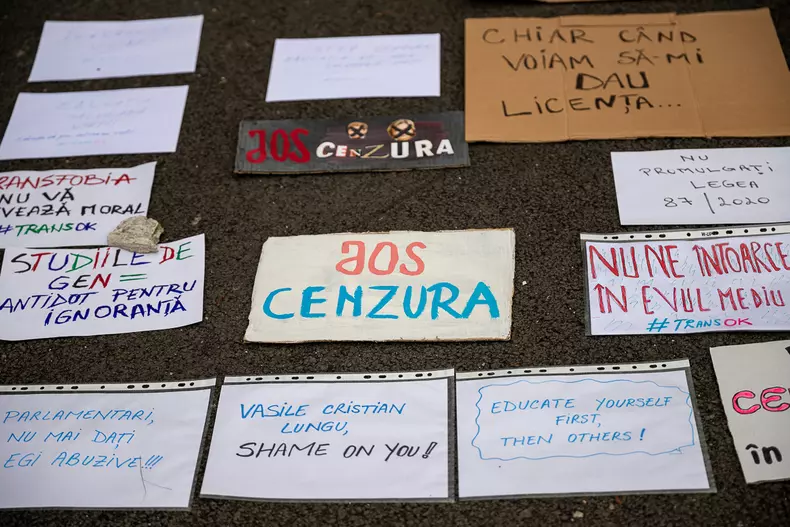 CHIAR CÂND
VOIAM SĂ-MI
DAU
LICENȚA...
JOS CENZURA
NU
PROMULGAȚI
LEGEA
87/2020
TRANSFOBIA
NU VĂ
MORAL
#TRANSOK
STUDIILE DE
GEN =
ANTIDOT PENTRU
IGNORANȚĂ
JOS
CENZURA
NU NE ÎNTOARCEȚI
ÎN EVUL MEDIU
#TRANSOK
PARLAMENTARI,
NU MAI DAȚI
EGI ABUZIVE!!!
VASILE CRISTIAN
LUNGU,
SHAME ON YOU!
EDUCATE YOURSELF
FIRST,
THEN OTHERS!
CE
în